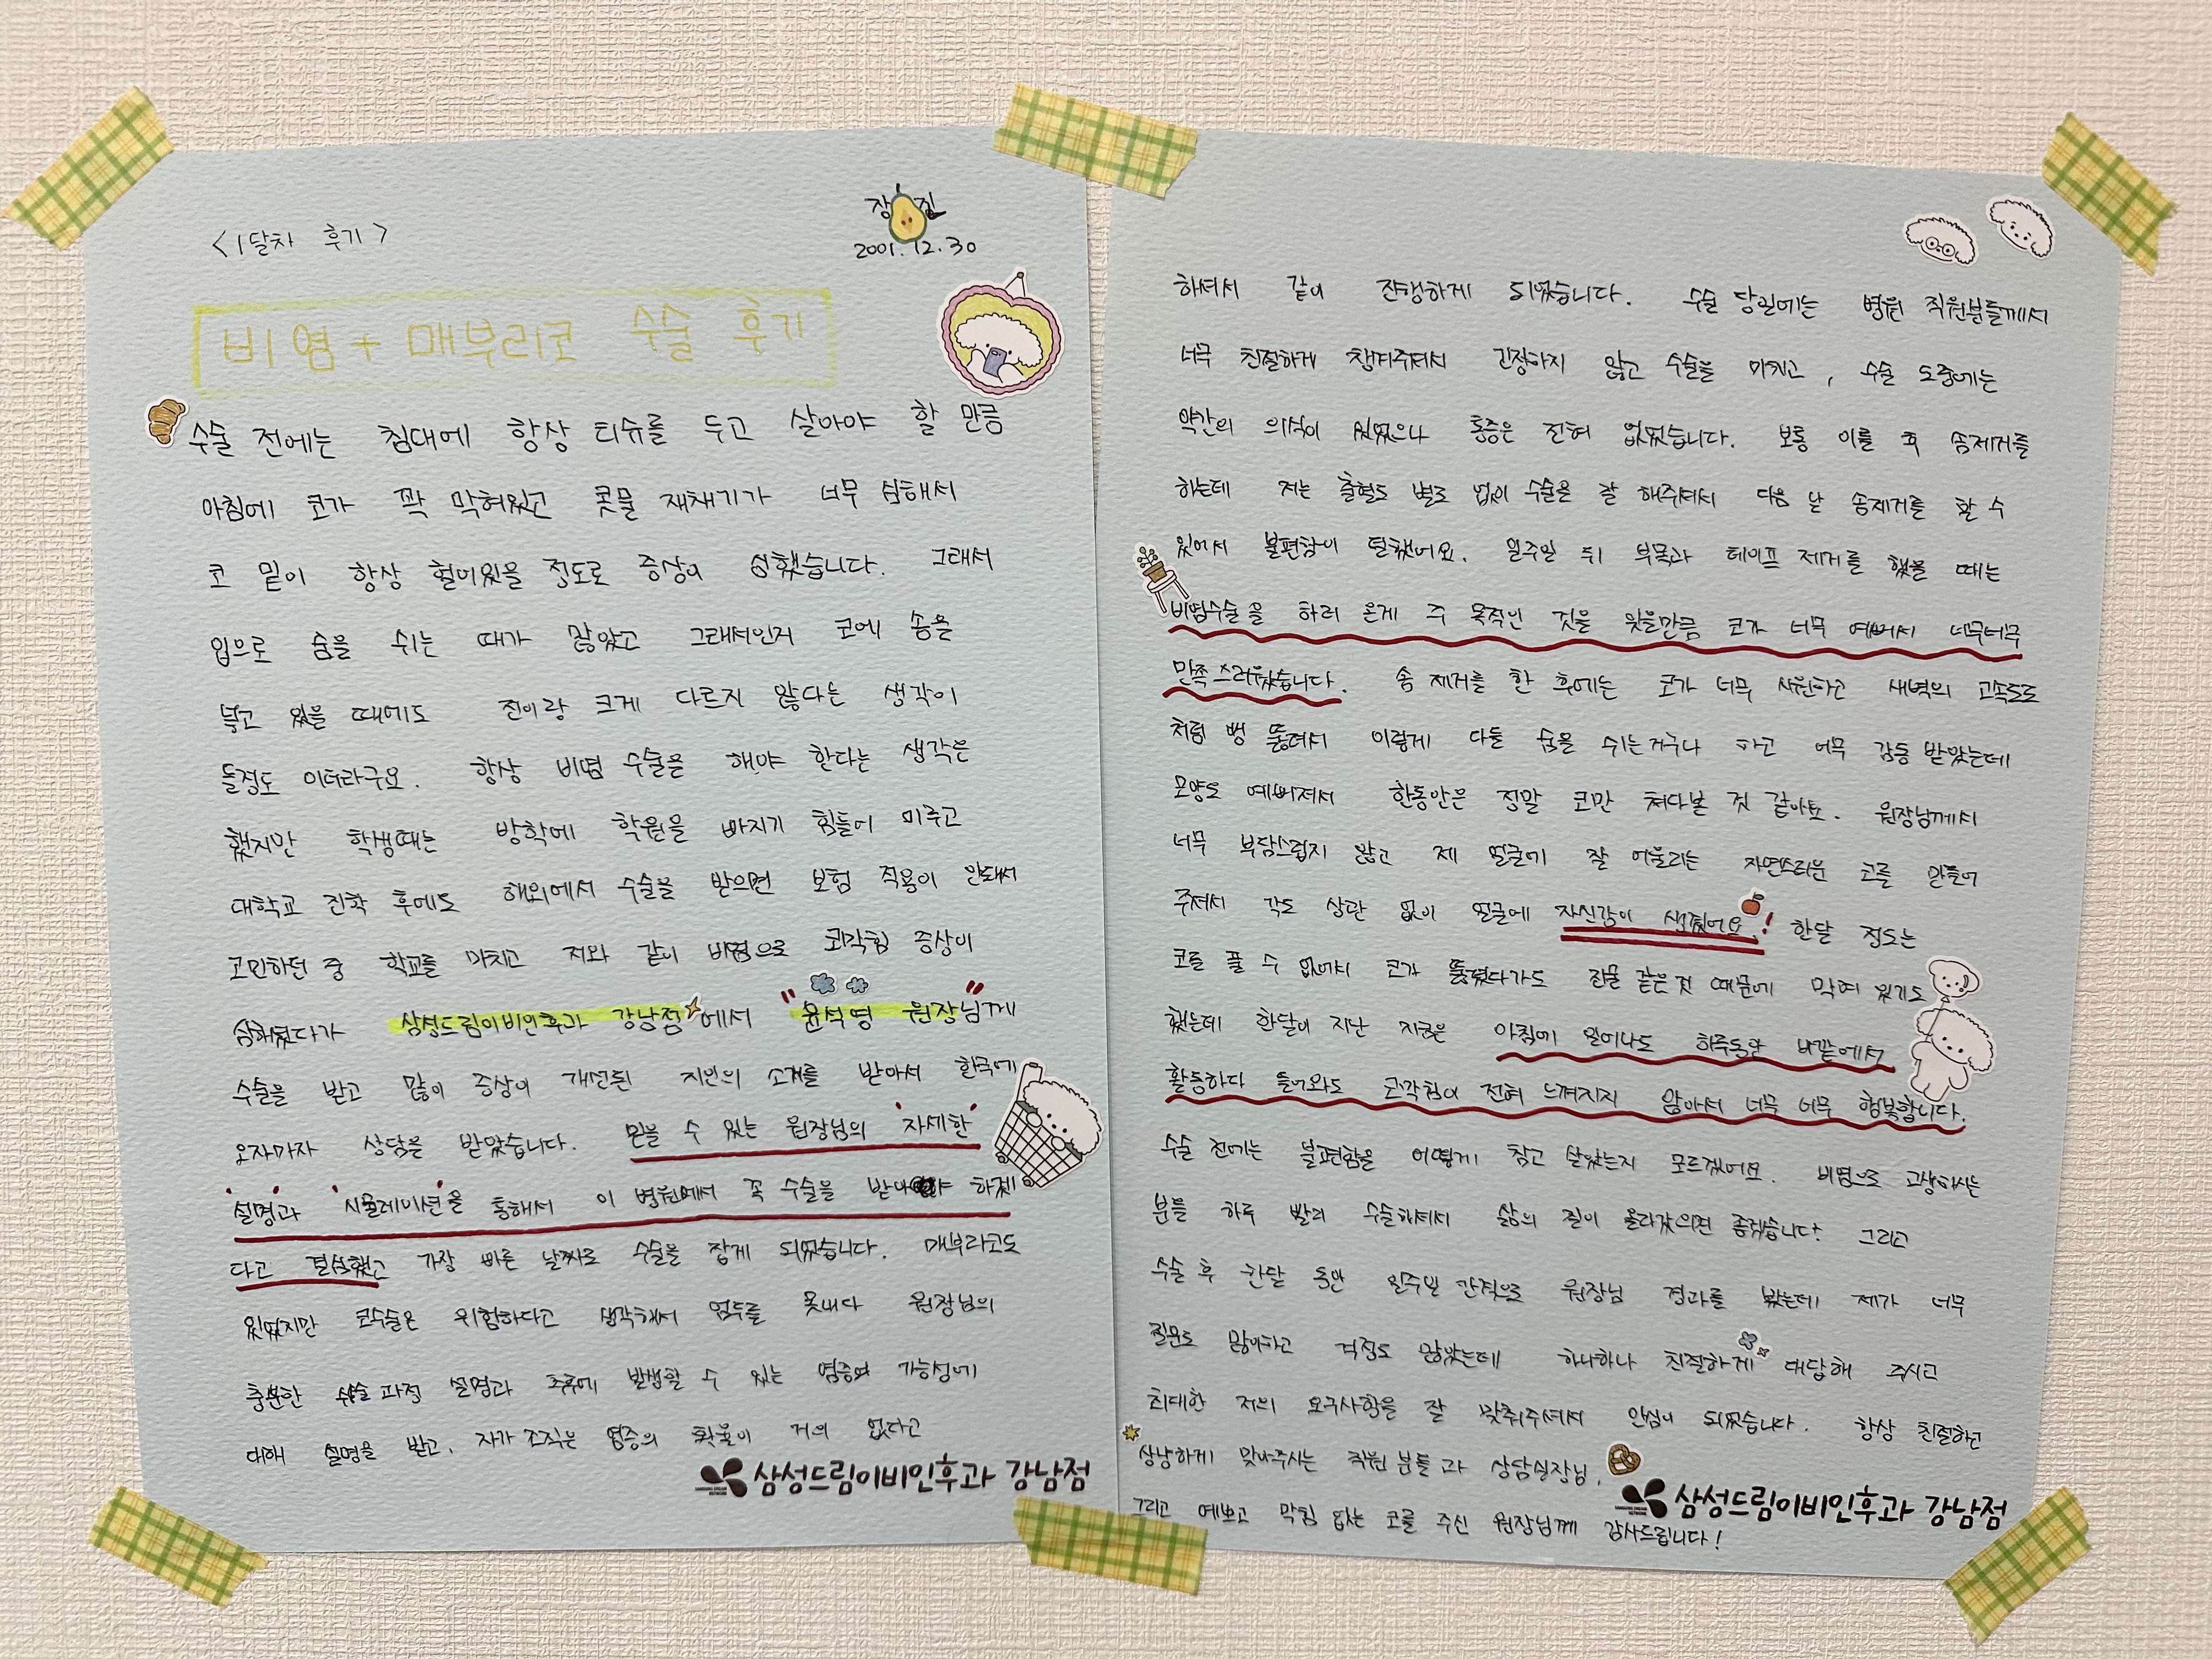 <1달차 후기>
장 진
2001.12.30
비염 + 매부리코 수술 후기
수술 전에는 침대에 항상 티슈를 두고 살아야 할 만큼
아침에 코가 꽉 막혀있고 콧물 재채기가 너무 심해서
코 밑이 항상 헐어있을 정도로 증상이 심했습니다. 그래서
입으로 숨을 쉬는 때가 많았고 그래서인지 코에 솜을
넣고 있을 때에도 전이랑 크게 다르지 않다는 생각이
들정도 이더라구요. 항상 비염 수술을 해야 한다는 생각은
했지만 학생때는 방학에 학원을 빠지기 힘들어 미루고
대학교 진학 후에도 해외에서 수술을 받으면 보험 적용이 안돼서
고민하던 중 학교를 마치고 저와 같이 비염으로 코막힘 증상이
심해졌다가 삼성드림이비인후과 강남점에서 "윤석영 원장님"께
수술을 받고 많이 증상이 개선된 지인의 소개를 받아서 한국에
오자마자 상담을 받았습니다. 믿을 수 있는 원장님의 '자세한'
'설명'과 '시뮬레이션'을 통해서 이 병원에서 꼭 수술을 받아야 하겠
다고 결심했고 가장 빠른 날짜로 수술을 잡게 되었습니다. 매부리코도
있었지만 코수술은 위험하다고 생각해서 엄두를 못내다 원장님의
충분한 수술 과정 설명과 추후에 발생할 수 있는 염증의 가능성에
대해 설명을 받고, 자가 조직은 염증의 확률이 거의 없다고
삼성드림이비인후과 강남점
하셔서 같이 진행하게 되었습니다. 수술 당일에는 병원 직원분들께서
너무 친절하게 챙겨주셔서 긴장하지 않고 수술을 마치고, 수술 도중에는
약간의 의식이 있었으나 통증은 전혀 없었습니다. 보통 이틀 후 솜제거를
하는데 저는 출혈도 별로 없이 수술을 잘 해주셔서 다음 날 솜제거를 할 수
있어서 불편함이 덜했어요. 일주일 뒤 부목과 테이프 제거를 했을 때는
비염수술을 하러 온게 주 목적인 것을 잊을만큼 코가 너무 예뻐서 너무너무
만족스러웠습니다. 솜 제거를 한 후에는 코가 너무 시원하고 새벽의 고속도로
처럼 뻥 뚫려서 이렇게 다들 숨을 쉬는거구나 하고 너무 감동 받았는데
모양도 예뻐져서 한동안은 정말 코만 쳐다본 것 같아요. 원장님께서
너무 부담스럽지 않고 제 얼굴에 잘 어울리는 자연스러운 코를 만들어
주셔서 각도 상관 없이 얼굴에 자신감이 생겼어요! 한달 정도는
코를 풀 수 없어서 코가 뚫렸다가도 진물 같은 것 때문에 막혀 있기도
했는데 한달이 지난 지금은 아침에 일어나도 하루동안 바깥에서
활동하다 들어와도 코막힘이 전혀 느껴지지 않아서 너무 너무 행복합니다.
수술 전에는 불편함을 어떻게 참고 살았는지 모르겠어요. 비염으로 고생하시는
분들 하루 빨리 수술하셔서 삶의 질이 올라갔으면 좋겠습니다! 그리고
수술 후 한달 동안 일주일 간격으로 원장님 경과를 봤는데 제가 너무
질문도 많아하고 걱정도 많았는데 하나하나 친절하게 대답해 주시고
최대한 저의 요구사항을 잘 맞춰주셔서 안심이 되었습니다. 항상 친절하고
상냥하게 맞아주시는 직원 분들과 상담실장님,
그리고 예쁘고 막힘 없는 코를 주신 원장님께 감사드립니다!
삼성드림이비인후과 강남점